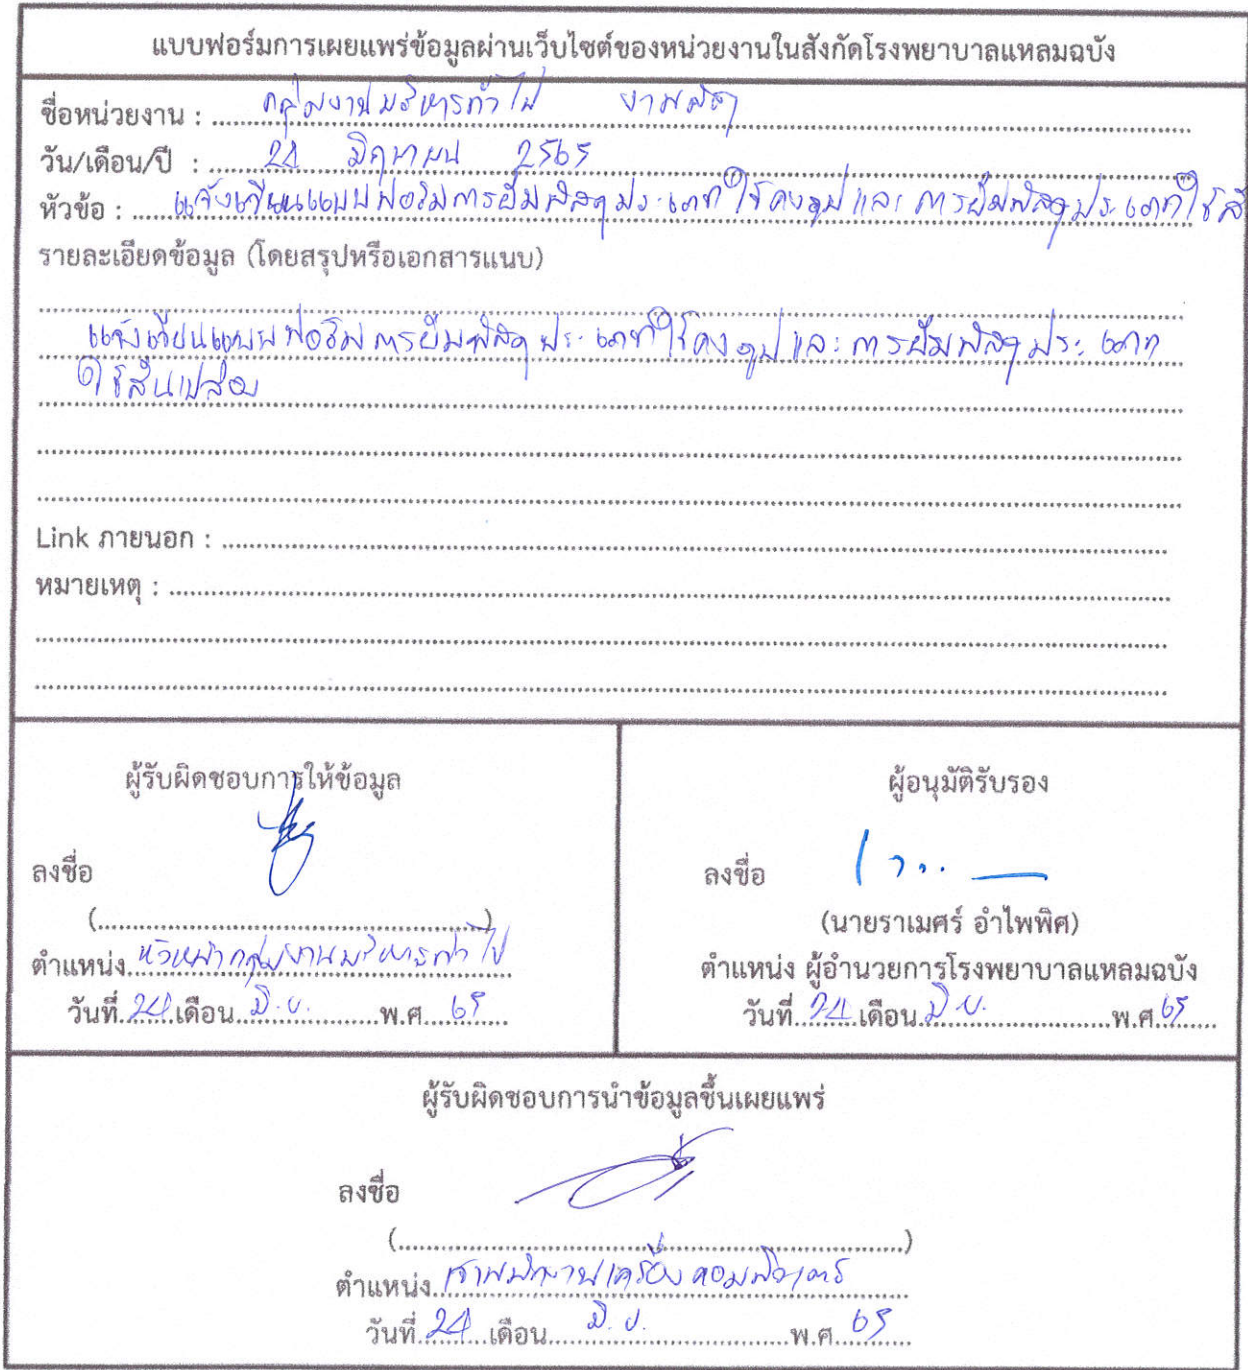 แบบฟอร์มการเผยแพร่ข้อมูลผ่านเว็บไซต์ของหน่วยงานในสังกัดโรงพยาบาลแหลมฉบัง
ชื่อหน่วยงาน : กลุ่มงานบริหารทั่วไป งานพัสดุ
วัน/เดือน/ปี : 24 มิถุนายน 2565
หัวข้อ : แจ้งเวียนแบบฟอร์มการยืมพัสดุประเภทใช้คงรูป และ การยืมพัสดุประเภทใช้สิ
รายละเอียดข้อมูล (โดยสรุปหรือเอกสารแนบ)
แจ้งเวียนแบบฟอร์มการยืมพัสดุประเภทใช้คงรูป และ การยืมพัสดุประเภท
ใช้สิ้นเปลือง
Link ภายนอก :
หมายเหตุ :
ผู้รับผิดชอบการให้ข้อมูล
ลงชื่อ
(....)
ตำแหน่ง หัวหน้ากลุ่มงานบริหารทั่วไป
วันที่ 24 เดือน มิ.ย. พ.ศ. 65
ผู้อนุมัติรับรอง
ลงชื่อ
(นายราเมศร์ อำไพพิศ)
ตำแหน่ง ผู้อำนวยการโรงพยาบาลแหลมฉบัง
วันที่ 24 เดือน มิ.ย. พ.ศ. 65
ผู้รับผิดชอบการนำข้อมูลขึ้นเผยแพร่
ลงชื่อ
(....)
ตำแหน่ง เจ้าพนักงานเครื่องคอมพิวเตอร์
วันที่ 24 เดือน มิ.ย. พ.ศ. 65